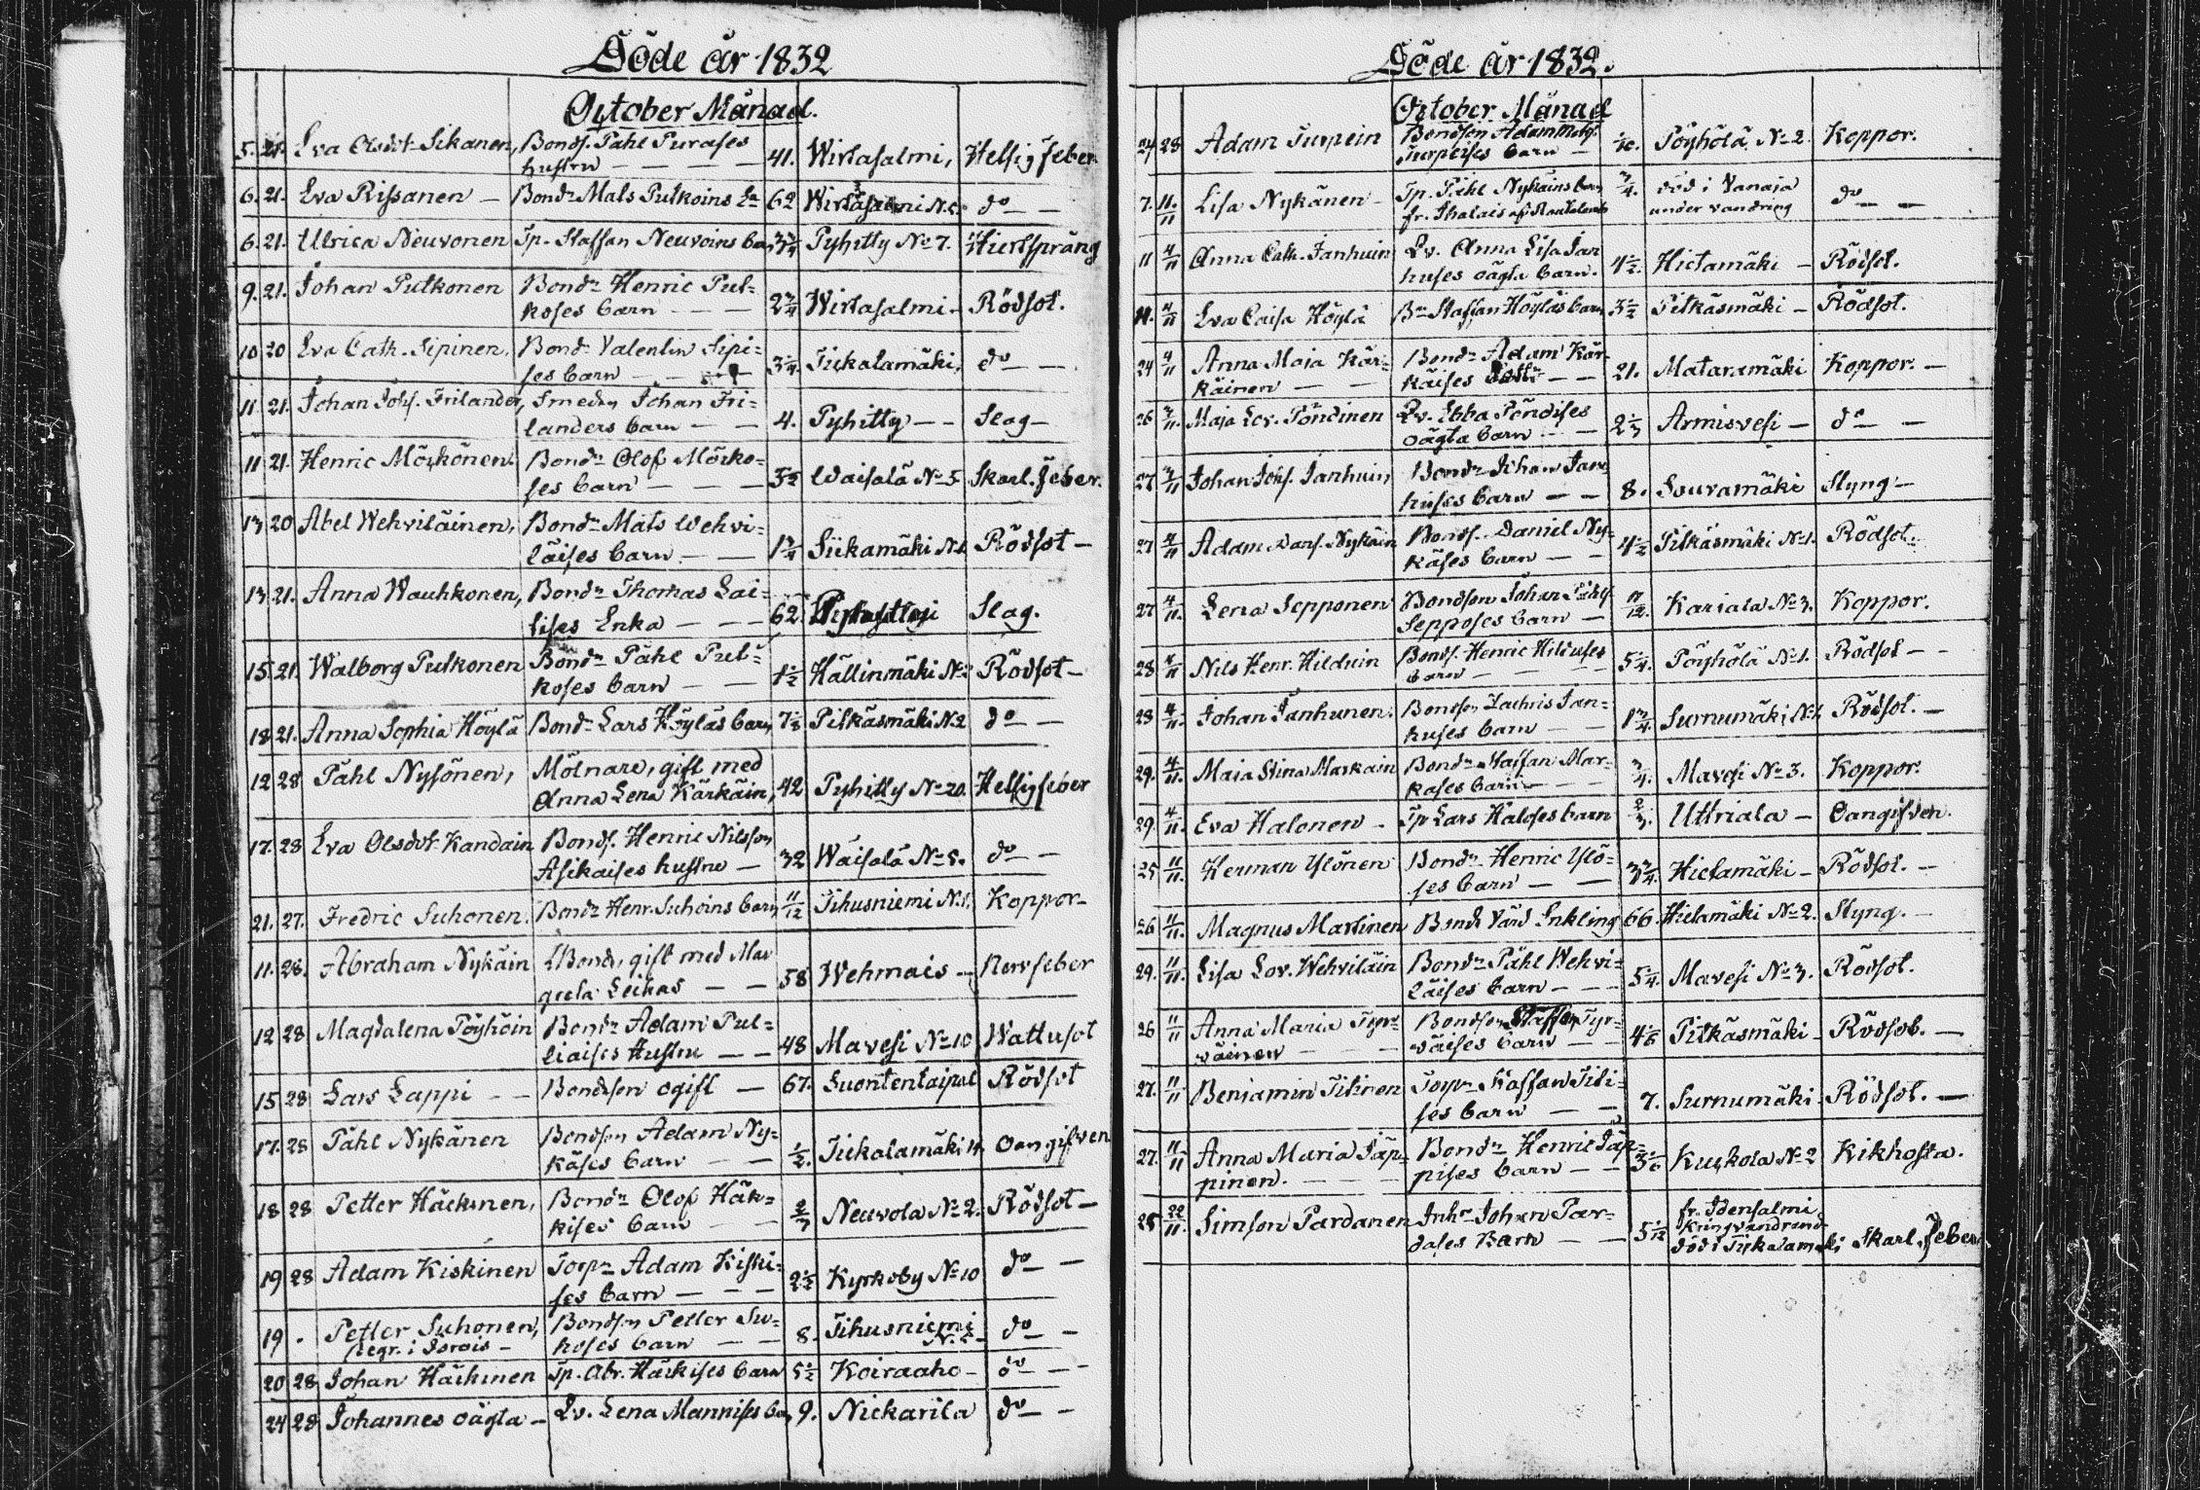 Döde år 1832
October Månad.
5. 21. Eva Olsdot. Sikanen, Bonds. Påhl Purases
hustru — — — 41. Wirtasalmi, Hetsig feber
6. 21. Eva Rissanen — Bondn Mats Putkoins Ea 62 Wirtasalmi N. 5. do — —
6. 21. Ulrica Neuvonen Tp. Staffan Neuvoins barn 3 3/4 Pyhitty No 7. Hiertsprång
9. 21. Johan Putkonen Bondn Henric Put-
koses barn — — — 2 3/4 Wirtasalmi — Rödsot.
10 20 Eva Cath. Sipinen, Bondn Valentin Sipi-
ses barn — — 3 1/4 Tickalamäki, do — —
11 21. Johan Johs. Frilander, Smeden Johan Fri-
landers barn — — 4. Pyhitty — — Slag —
11 21. Henric Möskönen. Bondn Olof Mösko-
ses barn — — — 5 1/2 Waisalä No 5 Skarl. feber.
13 20 Abel Wehviläinen, Bondn Mats Wehvi-
läises barn — — 1 3/4 Siikamäki N. 1. Rödsot —
13 21. Anna Wauhkonen, Bondn Thomas Lai-
tises Enka — — 62. Slag.
15 21. Walborg Putkonen Bondn Påhl Put-
koses barn — — 1 1/2 Hällinmäki No 2 Rödsot —
18 21. Anna Sophia Höylä Bondn Lars Höyläs barn, 7 1/2 Pitkäsmäki N. 2 do —
12 28 Påhl Nysönen, Mölnare, gift med
Anna Lena Kärkäin, 42 Pyhitty No 20. Hetsigfeber
17. 28 Eva Olsdot. Kandain Bonds. Henric Nilsson
Asikaises hustru — 32 Wäisälä No 8. do —
21. 27. Fredric Suhonen. Bondn Henr. Suhoins barn 11/12 Tihusniemi N. 1. Koppor —
11. 28. Abraham Nykäin Bonde, gift med Mar
greta — — 58 Wehmais — Nervfeber
12 28 Magdalena Pöyhöin Bondn Adam Pul-
liaises Hustru — — 48 Mavesi No 10 Wattusot
15 28 Lars Lappi — — Bondson ogift — 67. Suontentaipal Rödsot
17. 28 Påhl Nykänen Bondson Adam Ny-
käses barn — — 1/2. Tickalamäki 14. Oangifven
18 28 Petter Häckinen, Bondn Olof Häk-
kises barn — — 2/3 Neuvola No 2. Rödsot —
19 28 Adam Kiskinen Torpn Adam Kiski-
ses barn — — — 2 1/2 Kyrkoby No 10 do —
19 - Petter Suhonen, Bondson Petter Su- Tihusniemi
begr. i Jorois — hoses barn — — 8. do —
20 28 Johan Häckinen Tp. Abr. Häckises barn 5 1/2 Koiraaho — do — —
24 28 Johannes oägta — Qv. Lena Mannises ba, 9. Nickarila do — —
Döde år 1832.
October Månad
24 28 Adam Turpein Bondson Adam Mats.
Turpeises barn — Pöyhölä No 2. Koppor.
7. 11/11 Lisa Nykänen — Tp. Påhl Nykäins barn 3/4. död i Vanaja
under vandring do — —
11 4/11 Anna Cath. Janhuin Qv. Anna Lisa Jan
huses oägta barn. 4 1/2. Hietamäki — Rödsot.
14. 4/11 Eva Caisa Höylä Bn Staffan Höyläs barn 3 1/2 Pitkäsmäki — Rödsot.
24 4/11 Anna Maja Kär- Bondn Adam Kär-
käinen — — käises — — 21. Mataramäki Koppor. —
26 4/11. Maja Lov. Pöndinen Qv. Ebba Pöndises
oägta barn — 2 1/3 Armisvesi — do —
27 4/11 Johan Johs. Janhuin, Bondn Johan Jan
huses barn — — 8. Souvamäki Styng —
27 4/11 Adam Dans. Nykäin Bonds. Daniel Ny-
käses barn — — 4 1/2 Pitkäsmäki No 1. Rödsot.
27 4/11. Lena Sepponen Bondson Johan Påhls.
Sepposes barn — 11/12. Kariala No 3. Koppor.
28 4/11 Nils Henr. Hilduin Bonds. Henric Hilduses
barn — 5 1/4. Pöyhölä No 1. Rödsot — —
28 4/11. Johan Janhunen. Bondson Zachris Jan-
huses barn — — 1 3/4. Surnumäki, N. 1. Rödsot. —
29. 4/11. Maja Stina Markain Bondn Staffan Mar-
kases barn — 3/4. Mavesi No 3. Koppor.
29 4/11. Eva Halonen — Tp Lars Haloses barn 2/3. Uttriala — Oangifven.
25 11/11. Herman Ylönen Bondn Henric Ylö-
ses barn — — 3 3/4. Hietamäki — Rödsot. —
26 11/11. Magnus Martinen Bonde Värd Enkling 66. Hietamäki No 2. Styng. —
29. 11/11. Lisa Lov. Wehviläin Bondn Påhl Wehvi-
läises barn — — 5 1/4. Mavesi No 3. Rödsot.
26 11/11 Anna Maria Tyr- Bondson Staffan Tyr-
väinen — — väises barn — — 4 1/6 Pitkäsmäki — Rödsot. —
27. 11/11 Benjamin Titinen Torpn Staffan Titi-
ses barn — — 7. Surnumäki — Rödsot. —
27. 11/11 Anna Maria Jäp- Bondn Henric Jäp-
pinen. — — — pises barn — — 3 1/6 Kuckola No 2 Kikhosta.
25 22/11. Simson Pardanen Inhs Johan Par- fr. Idensalmi
dases Barn — — 5 1/12 kringvandrande
död i Tickalamäki Skarl. Feber.